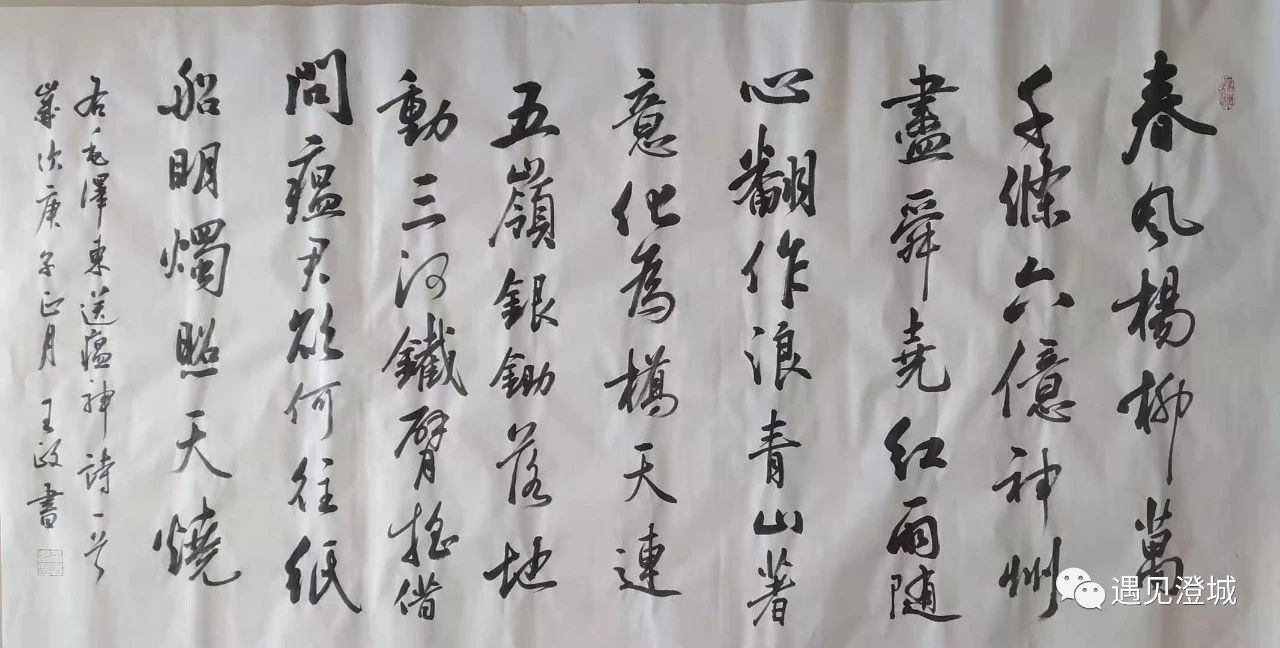 春風楊柳萬
千條六億神州
盡舜堯紅雨隨
心翻作浪青山著
意化為橋天連
五嶺銀鋤落地
動三河鐵臂搖借
問瘟君欲何往紙
船明燭照天燒
右毛澤東送瘟神詩一首
歲次庚子正月王政書
遇见澄城